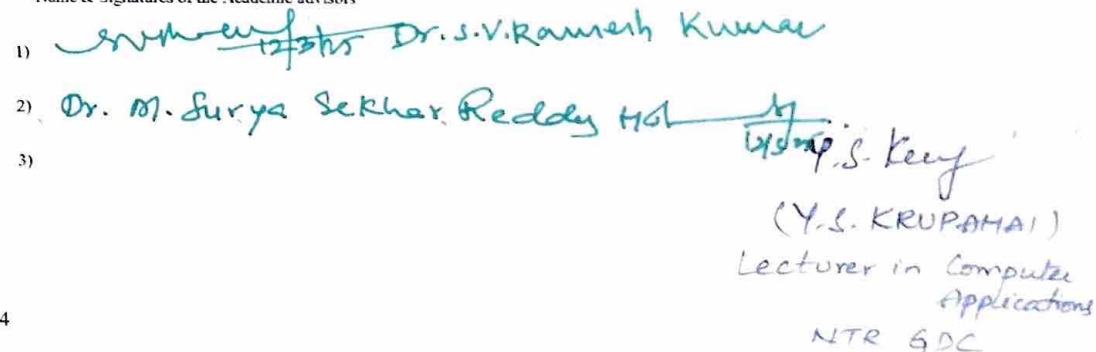 Name & Signatures of the Academic advisors
1) 12/3/25 Dr. S.V. Ramesh Kumar
2) Dr. M. Surya Sekhar Reddy
3)
Y.S.
(Y.S. KRUPAMAI)
Lecturer in Computer
Applications
NTR GDC
4